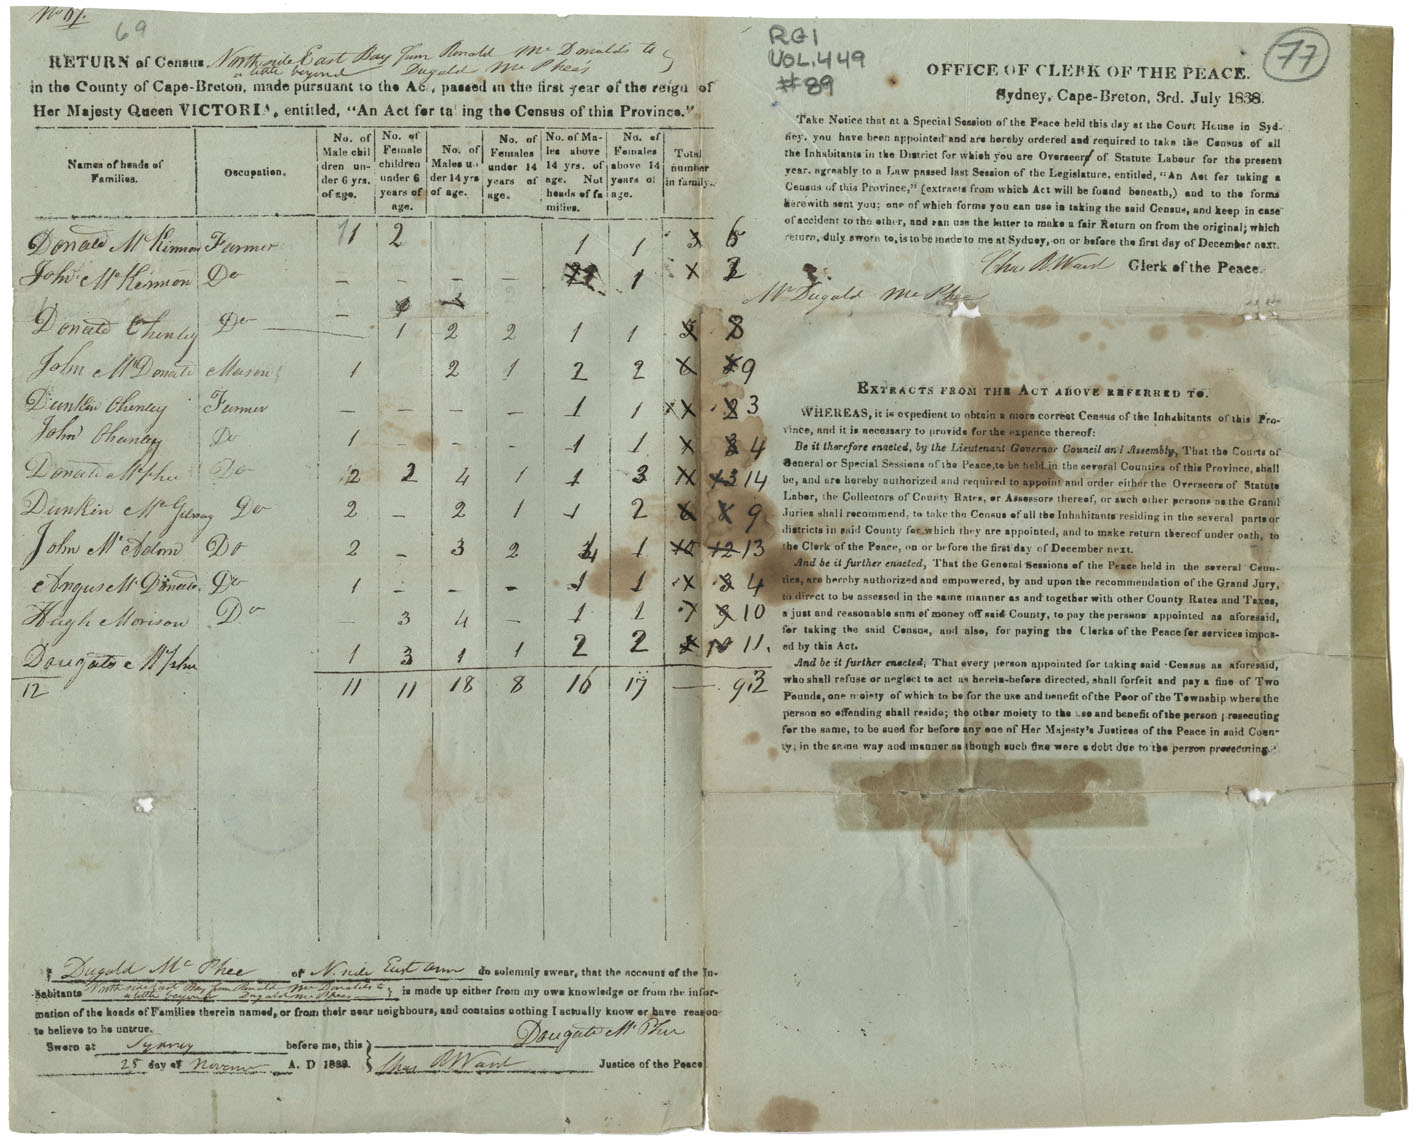 No 67.
69
RETURN of Census North side East Bay from Ronald Mc Donalds to
a little beyond Dugald Mc Phee's
in the County of Cape-Breton, made pursuant to the Act, passed in the first year of the reign of
Her Majesty Queen VICTORIA, entitled, "An Act for taking the Census of this Province."
Names of heads of Families. Occupation. No. of Male children under 6 yrs. of age. No. of Female children under 6 years of age. No. of Males under 14 yrs of age. No. of Females under 14 years of age. No. of Males above 14 yrs. of age. Not heads of families. No. of Females above 14 years of age. Total number in family.
Donald McKinnon Farmer 1 2 1 1 3 6
John McKinnon Do – – – – 1 1 x 2
Donald Chenley Do – 1 2 2 1 1 5 8
John McDonald Mason 1 2 1 2 2 6 8 9
Dunkin Chenley Farmer – – – – 1 1 x 2 3
John Chenley Do 1 – – – 1 1 x 3 4
Donald McPhee Do 2 2 4 1 1 3 x 13 14
Dunkin McGilvray Do 2 – 2 1 1 2 6 8 9
John McAdam Do 2 – 3 2 4 1 10 12 13
Angus McDonald Do 1 – – – 1 1 x 3 4
Hugh Morison Do – 3 4 – 1 1 7 9 10
Dougate McPhee 1 3 1 1 2 2 8 10 11.
12 11 11 18 8 16 17 — 93
I Dugald Mc Phee of N. side East arm do solemnly swear, that the account of the In-
habitants North side East Bay from Ronald McDonalds to
a little beyond Dugald McPhees is made up either from my own knowledge or from the infor-
mation of the heads of Families therein named, or from their near neighbours, and contains nothing I actually know or have reason
to believe to be untrue.
Dougate McPhee
Sworn at Sydney before me, this
28 day of Novemr A. D 1838. Chas R Ward Justice of the Peace
RG1
VOL.449
#89
77
OFFICE OF CLERK OF THE PEACE.
Sydney, Cape-Breton, 3rd. July 1838.
Take Notice that at a Special Session of the Peace held this day at the Court House in Syd-
ney, you have been appointed and are hereby ordered and required to take the Census of all
the Inhabitants in the District for which you are Overseer of Statute Labour for the present
year, agreably to a Law passed last Session of the Legislature, entitled, "An Act for taking a
Census of this Province," (extracts from which Act will be found beneath,) and to the forms
herewith sent you; one of which forms you can use in taking the said Census, and keep in case
of accident to the other, and can use the latter to make a fair Return on from the original; which
return, duly sworn to, is to be made to me at Sydney, on or before the first day of December next.
Chas R. Ward Clerk of the Peace.
Mr Dugald McPhee
EXTRACTS FROM THE ACT ABOVE REFERRED TO.
WHEREAS, it is expedient to obtain a more correct Census of the Inhabitants of this Pro-
vince, and it is necessary to provide for the expence thereof:
Be it therefore enacted, by the Lieutenant Governor Council and Assembly, That the Courts of
General or Special Sessions of the Peace, to be held in the several Counties of this Province, shall
be, and are hereby authorized and required to appoint and order either the Overseers of Statute
Labor, the Collectors of County Rates, or Assessors thereof, or such other persons as the Grand
Juries shall recommend, to take the Census of all the Inhabitants residing in the several parts or
districts in said County for which they are appointed, and to make return thereof under oath, to
the Clerk of the Peace, on or before the first day of December next.
And be it further enacted, That the General Sessions of the Peace held in the several Coun-
ties, are hereby authorized and empowered, by and upon the recommendation of the Grand Jury,
to direct to be assessed in the same manner as and together with other County Rates and Taxes,
a just and reasonable sum of money off said County, to pay the persons appointed as aforesaid,
for taking the said Census, and also, for paying the Clerks of the Peace for services impos-
ed by this Act.
And be it further enacted, That every person appointed for taking said Census as aforesaid,
who shall refuse or neglect to act as herein-before directed, shall forfeit and pay a fine of Two
Pounds, one moiety of which to be for the use and benefit of the Poor of the Township where the
person so offending shall reside; the other moiety to the use and benefit of the person prosecuting
for the same, to be sued for before any one of Her Majesty's Justices of the Peace in said Coun-
ty; in the same way and manner as though such fine were a debt due to the person prosecuting.